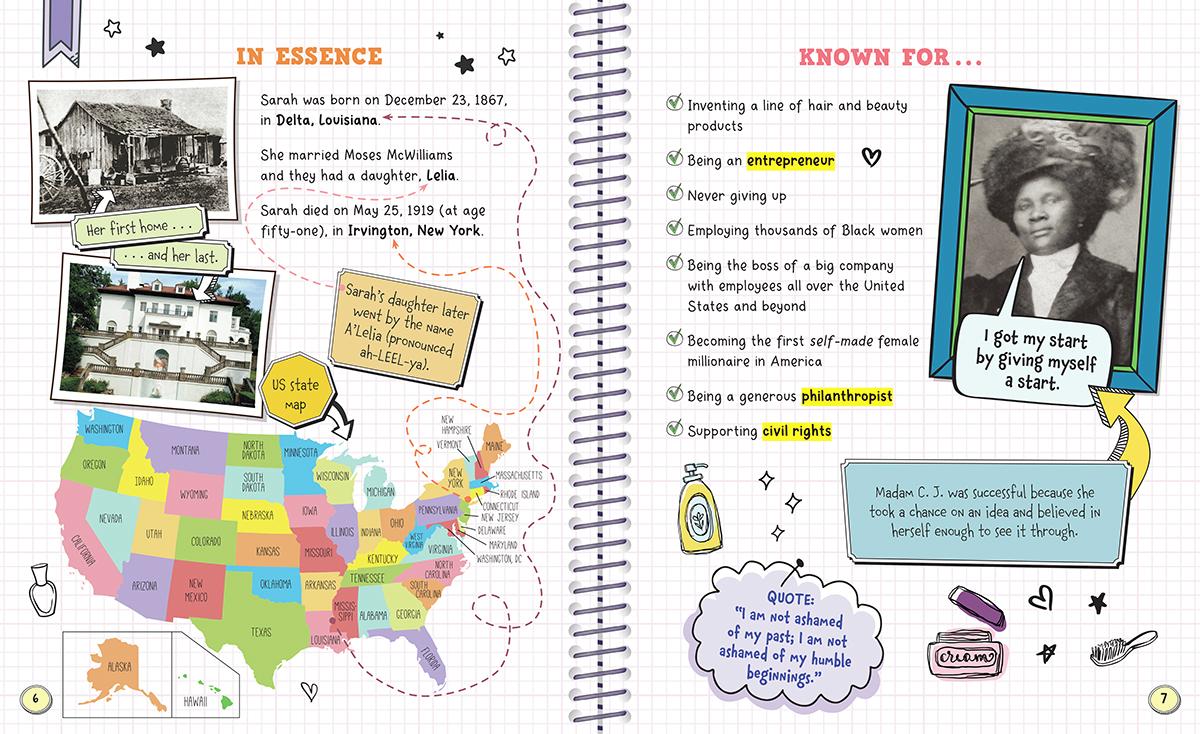 IN ESSENCE
Sarah was born on December 23, 1867,
in Delta, Louisiana.
She married Moses McWilliams
and they had a daughter, Lelia.
Sarah died on May 25, 1919 (at age
fifty-one), in Irvington, New York.
Her first home . . .
. . . and her last.
Sarah's daughter later
went by the name
A'Lelia (pronounced
ah-LEEL-ya).
US state
map
WASHINGTON
OREGON
CALIFORNIA
IDAHO
NEVADA
MONTANA
WYOMING
UTAH
ARIZONA
COLORADO
NEW
MEXICO
NORTH
DAKOTA
SOUTH
DAKOTA
NEBRASKA
KANSAS
OKLAHOMA
TEXAS
MINNESOTA
IOWA
MISSOURI
ARKANSAS
LOUISIANA
WISCONSIN
ILLINOIS
MICHIGAN
INDIANA
OHIO
KENTUCKY
TENNESSEE
MISSIS-
SIPPI
ALABAMA
GEORGIA
FLORIDA
SOUTH
CAROLINA
NORTH
CAROLINA
VIRGINIA
WEST
VIRGINIA
PENNSYLVANIA
NEW
YORK
VERMONT
NEW
HAMPSHIRE
MAINE
MASSACHUSETTS
RHODE ISLAND
CONNECTICUT
NEW JERSEY
DELAWARE
MARYLAND
WASHINGTON, DC
ALASKA
HAWAII
6
KNOWN FOR . . .
Inventing a line of hair and beauty
products
Being an entrepreneur
Never giving up
Employing thousands of Black women
Being the boss of a big company
with employees all over the United
States and beyond
Becoming the first self-made female
millionaire in America
Being a generous philanthropist
Supporting civil rights
I got my start
by giving myself
a start.
Madam C. J. was successful because she
took a chance on an idea and believed in
herself enough to see it through.
QUOTE:
"I am not ashamed
of my past; I am not
ashamed of my humble
beginnings."
cream
7